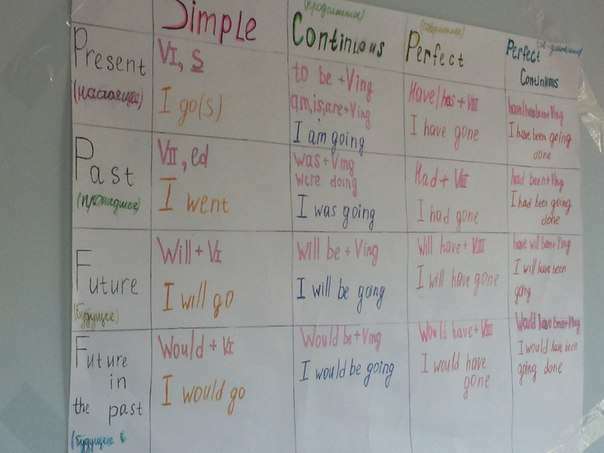 Simple
(продолженное)
Continious
Perfect
Perfect
Continious
Present
(настоящее)
VI, S
I go(s)
to be + Ving
am, is, are + Ving
I am going
Have/has + VIII
I have gone
have/has been + Ving
I have been going
done
Past
(прошедшее)
VII, ed
I went
was + Ving
were doing
I was going
Had + VIII
I had gone
had been + Ving
I had been going
done
Future
(будущее)
Will + VI
I will go
will be + Ving
I will be going
Will have + VIII
I will have gone
have will been + Ving
I will have seen
gong
Future
in
the past
(будущее в
Would + VI
I would go
Would be + Ving
I would be going
Would have + VIII
I would have
gone
Would have been + Ving
I would have been
going done